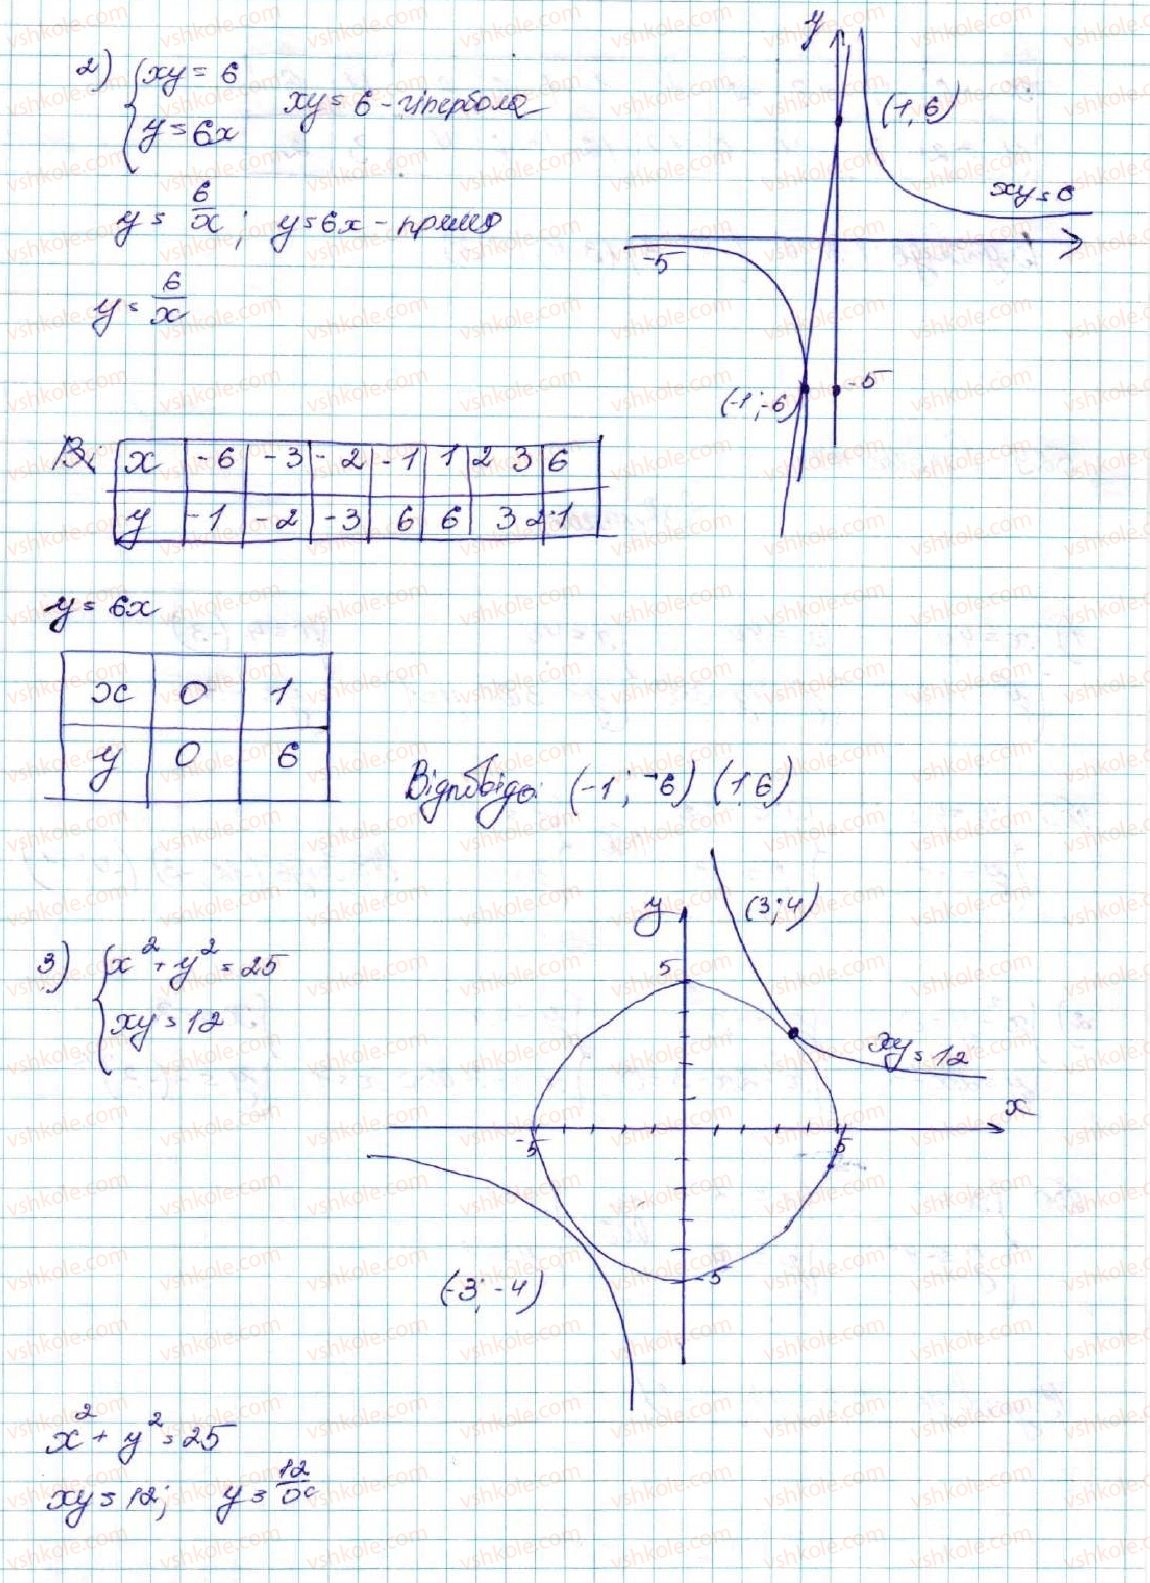 2) { xy = 6
y = 6x
xy = 6 - гіпербола
y = 6/x ; y = 6x - пряма
y = 6/x
y
(1, 6)
xy = 6
-5
(-1; -6)
-5
x | -6 | -3 | -2 | -1 | 1 | 2 3 | 6
y | -1 | -2 | -3 | 6 | 6 | 3 2 | 1
y = 6x
x | 0 | 1
y | 0 | 6
Відповідь: (-1; -6) (1 6)
3) { x² + y² = 25
xy = 12
y
(3; 4)
5
xy = 12
x
-5
5
-5
(-3; -4)
x² + y² = 25
xy = 12; y = 12/x